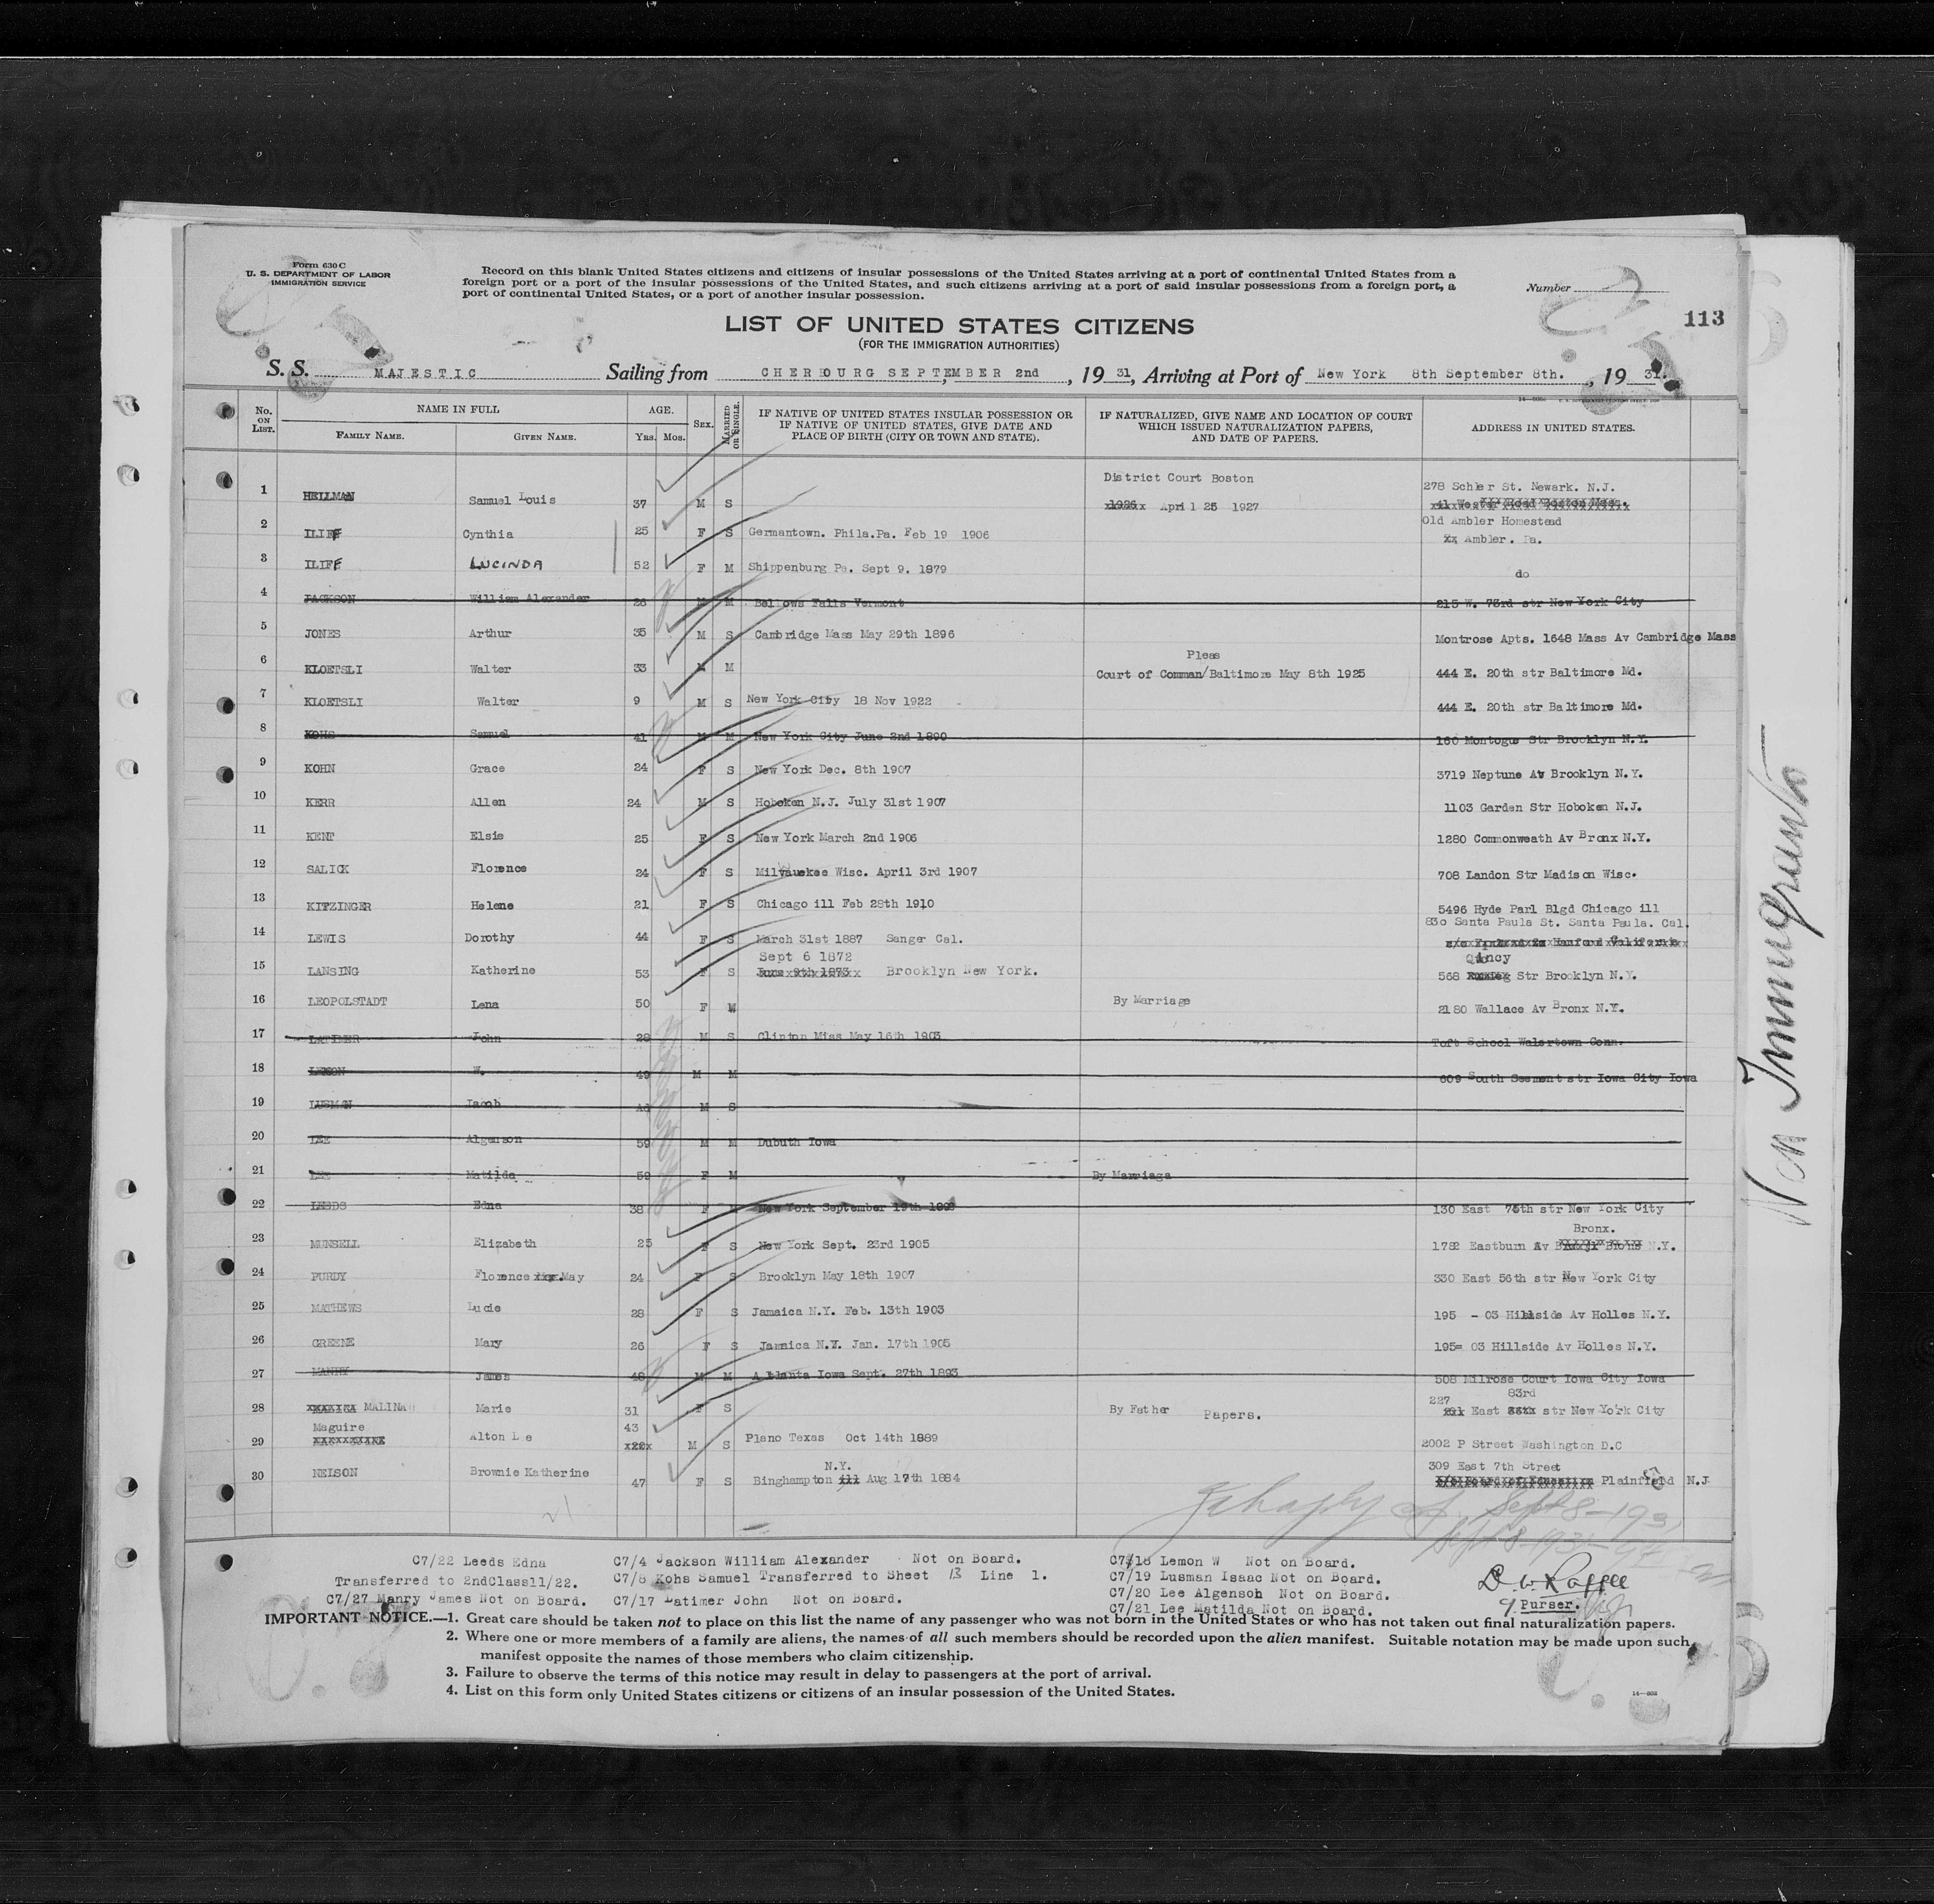 Form 630 C
U. S. DEPARTMENT OF LABOR
IMMIGRATION SERVICE
Record on this blank United States citizens and citizens of insular possessions of the United States arriving at a port of continental United States from a
foreign port or a port of the insular possessions of the United States, and such citizens arriving at a port of said insular possessions from a foreign port, a
port of continental United States, or a port of another insular possession.
Number
113
LIST OF UNITED STATES CITIZENS
(FOR THE IMMIGRATION AUTHORITIES)
S. S. MAJESTIC Sailing from CHERBOURG SEPTEMBER 2nd, 19 31, Arriving at Port of New York 8th September 8th., 19 31.
No. ON LIST. NAME IN FULL AGE. SEX. MARRIED OR SINGLE. IF NATIVE OF UNITED STATES INSULAR POSSESSION OR IF NATIVE OF UNITED STATES, GIVE DATE AND PLACE OF BIRTH (CITY OR TOWN AND STATE). IF NATURALIZED, GIVE NAME AND LOCATION OF COURT WHICH ISSUED NATURALIZATION PAPERS, AND DATE OF PAPERS. ADDRESS IN UNITED STATES.
FAMILY NAME. GIVEN NAME. Yrs. Mos.
District Court Boston 278 Schler St. Newark. N.J.
1 HELLMAN Samuel Louis 37 M S 1926 April 25 1927
Old Ambler Homestead
2 ILIFF Cynthia 25 F S Germantown. Phila.Pa. Feb 19 1906 xx Ambler. Pa.
3 ILIFF LUCINDA 52 F M Shippenburg Pa. Sept 9. 1879 do
4 JACKSON William Alexander 26 M M Bellows Falls Vermont 215 W. 73rd str New York City
5 JONES Arthur 35 M S Cambridge Mass May 29th 1896 Montrose Apts. 1648 Mass Av Cambridge Mass
Pleas
6 KLOETSLI Walter 33 M M Court of Comman/Baltimore May 8th 1925 444 E. 20th str Baltimore Md.
7 KLOETSLI Walter 9 M S New York City 18 Nov 1922 444 E. 20th str Baltimore Md.
8 KOHS Samuel 41 M M New York City June 2nd 1890 160 Montogue Str Brooklyn N.Y.
9 KOHN Grace 24 F S New York Dec. 8th 1907 3719 Neptune Av Brooklyn N.Y.
10 KERR Allen 24 M S Hoboken N.J. July 31st 1907 1103 Garden Str Hoboken N.J.
11 KENT Elsie 25 F S New York March 2nd 1906 1280 Commonweath Av Bronx N.Y.
12 SALICK Florence 24 F S Milwaukee Wisc. April 3rd 1907 708 Landon Str Madison Wisc.
13 KITZINGER Helene 21 F S Chicago ill Feb 28th 1910 5496 Hyde Parl Blgd Chicago ill
830 Santa Paula St. Santa Paula. Cal.
14 LEWIS Dorothy 44 F S March 31st 1887 Sanger Cal.
Sept 6 1872 Quincy
15 LANSING Katherine 53 F S June 9th 1873 Brooklyn New York. 568 Str Brooklyn N.Y.
16 LEOPOLSTADT Lena 50 F W By Marriage 2180 Wallace Av Bronx N.Y.
17 LATIMER John 28 M S Clinton Miss May 16th 1903 Toft School Walertown Conn.
18 LEMON W. 49 M M 609 South Seement str Iowa City Iowa
19 LUSMAN Iacob M S
20 LEE Algenson 59 M M Dubuth Iowa
21 LEE Matilda 59 F M By Marriage
22 LEEDS Edna 38 F New York September 19th 1893 130 East 75th str New York City
Bronx.
23 MUNSELL Elizabeth 25 F S New York Sept. 23rd 1905 1782 Eastburn Av N.Y.
24 PURDY Florence xxx.May 24 F S Brooklyn May 18th 1907 330 East 56th str New York City
25 MATHEWS Lucie 28 F S Jamaica N.Y. Feb. 13th 1903 195 - 03 Hillside Av Holles N.Y.
26 GREENE Mary 26 F S Jamaica N.Y. Jan. 17th 1905 195= 03 Hillside Av Holles N.Y.
27 MANRY James 48 M M Atlanta Iowa Sept. 27th 1893 508 Milrose Court Iowa City Iowa
227 83rd
28 MALINA Marie 31 F S By Father Papers. East str New York City
Maguire 43
29 Alton Lee M S Plano Texas Oct 14th 1889 2002 P Street Washington D.C
N.Y. 309 East 7th Street
30 NELSON Brownie Katherine 47 F S Binghampton ill Aug 17th 1884 c/o Board of Education Plainfield N.J
Sept 8-1931
C7/22 Leeds Edna C7/4 Jackson William Alexander Not on Board. C7/18 Lemon W Not on Board.
Transferred to 2ndClass11/22. C7/8 Kohs Samuel Transferred to Sheet 13 Line 1. C7/19 Lusman Isaac Not on Board.
C7/27 Manry James Not on Board. C7/17 Latimer John Not on Board. C7/20 Lee Algenson Not on Board.
C7/21 Lee Matilda Not on Board.
Purser.
IMPORTANT NOTICE.—1. Great care should be taken not to place on this list the name of any passenger who was not born in the United States or who has not taken out final naturalization papers.
2. Where one or more members of a family are aliens, the names of all such members should be recorded upon the alien manifest. Suitable notation may be made upon such
manifest opposite the names of those members who claim citizenship.
3. Failure to observe the terms of this notice may result in delay to passengers at the port of arrival.
4. List on this form only United States citizens or citizens of an insular possession of the United States.
Non Immigrants